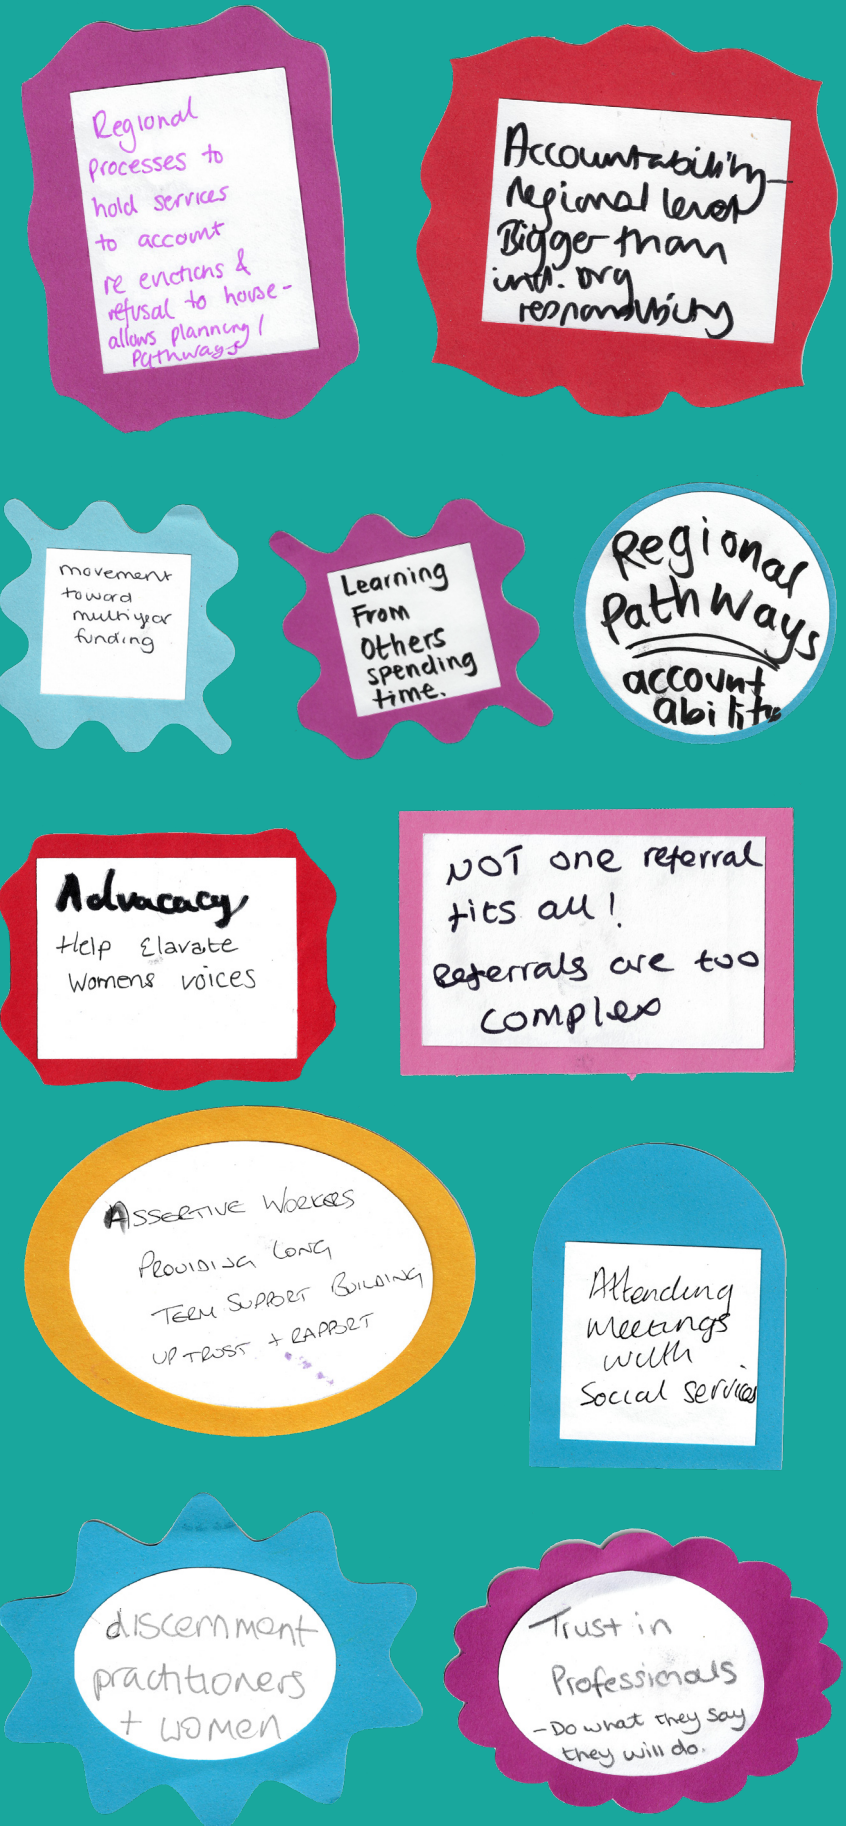 Regional
processes to
hold services
to account
re evictions &
refusal to house-
allows planning/
Pathways
Accountability-
regional level
Bigger than
ind. org
responsibility
movement
toward
multiyear
funding
Learning
From
Others
spending
time.
Regional
Pathways
account
ability
Advacacy
Help Elavate
Womens voices
NOT one referral
fits all!
Referrals are too
complex
ASSERTIVE WORKERS
PROVIDING LONG
TERM SUPPORT BUILDING
UP TRUST + RAPPORT
Attending
Meetings
with
Social services
discernment
practitioners
+ women
Trust in
Professionals
-Do what they say
they will do.